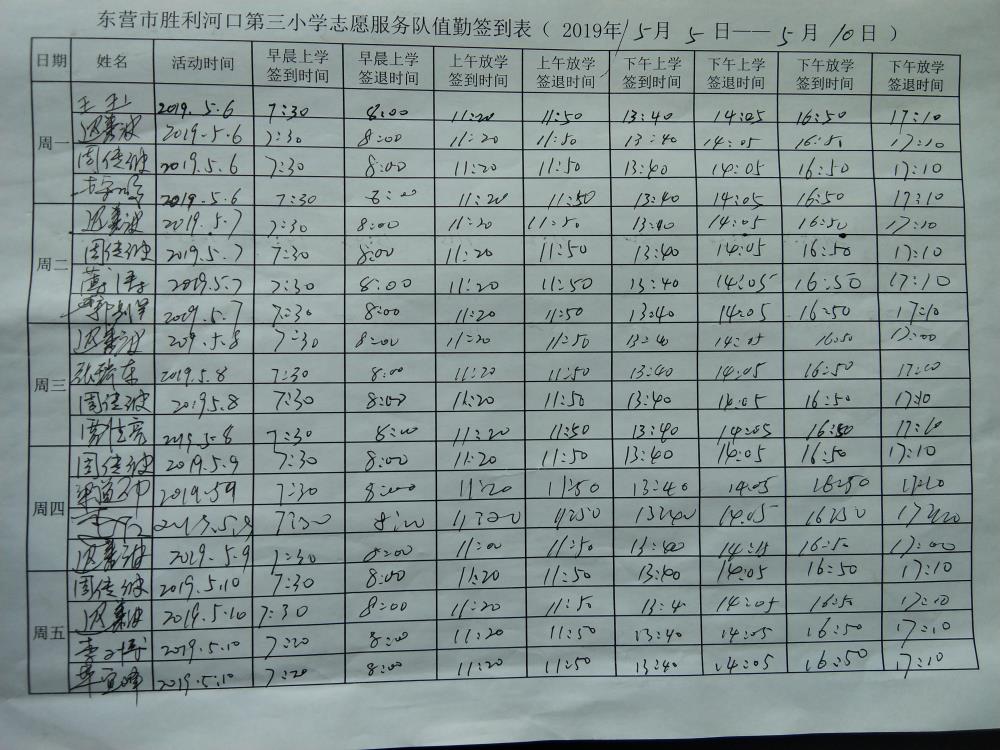 东营市胜利河口第三小学志愿服务队值勤签到表（ 2019年 5月 5日——5月 10日 ）
日期 姓名 活动时间 早晨上学签到时间 早晨上学签退时间 上午放学签到时间 上午放学签退时间 下午上学签到时间 下午上学签退时间 下午放学签到时间 下午放学签退时间
周一
2019.5.6 7:30 8:00 11:20 11:50 13:40 14:05 16:50 17:10
2019.5.6 7:30 8:00 11:20 11:50 13:40 14:05 16:50 17:10
周传波 2019.5.6 7:30 8:00 11:20 11:50 13:40 14:05 16:50 17:10
2019.5.6 7:30 8:00 11:20 11:50 13:40 14:05 16:50 17:10
周二
2019.5.7 7:30 8:00 11:20 11:50 13:40 14:05 16:50 17:10
周传波 2019.5.7 7:30 8:00 11:20 11:50 13:40 14:05 16:50 17:10
2019.5.7 7:30 8:00 11:20 11:50 13:40 14:05 16:50 17:10
2019.5.7 7:30 8:00 11:20 11:50 13:40 14:05 16:50 17:10
周三
209.5.8 7:30 8:00 11:20 11:50 13:40 14:05 16:50 17:00
张瑞东 2019.5.8 7:30 8:00 11:20 11:50 13:40 14:05 16:50 17:10
周传波 2019.5.8 7:30 8:00 11:20 11:50 13:40 14:05 16:50 17:10
2019.5.8 7:30 8:00 11:20 11:50 13:40 14:05 16:50 17:10
周四
周传波 2019.5.9 7:30 8:00 11:20 11:50 13:40 14:05 16:50 17:10
2019.5.9 7:30 8:00 11:20 11:50 13:40 14:05 16:50 17:10
2019.5.9 7:30 8:00 11:20 11:50 13:40 14:05 16:50 17:20
2019.5.9 7:30 8:00 11:00 11:50 13:40 14:15 16:50 17:00
周五
周传波 2019.5.10 7:30 8:00 11:20 11:50 13:40 14:05 16:50 17:10
2019.5.10 7:30 8:00 11:20 11:50 13:4 14:05 16:50 17:10
2019.5.10 7:20 8:00 11:20 11:50 13:40 14:05 16:50 17:10
2019.5.10 7:20 8:00 11:20 11:50 13:40 14:05 16:50 17:10